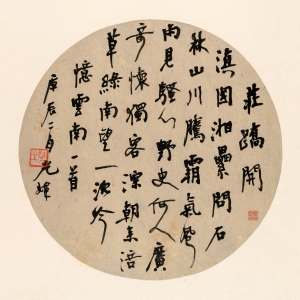 莊蹻開
滇國湘纍問石
林山川騰霸氣風
雨見騷心野史何人廣
奇懷獨客深朝來涪
草綠南望一沈吟
憶雲南一首
庚辰二月